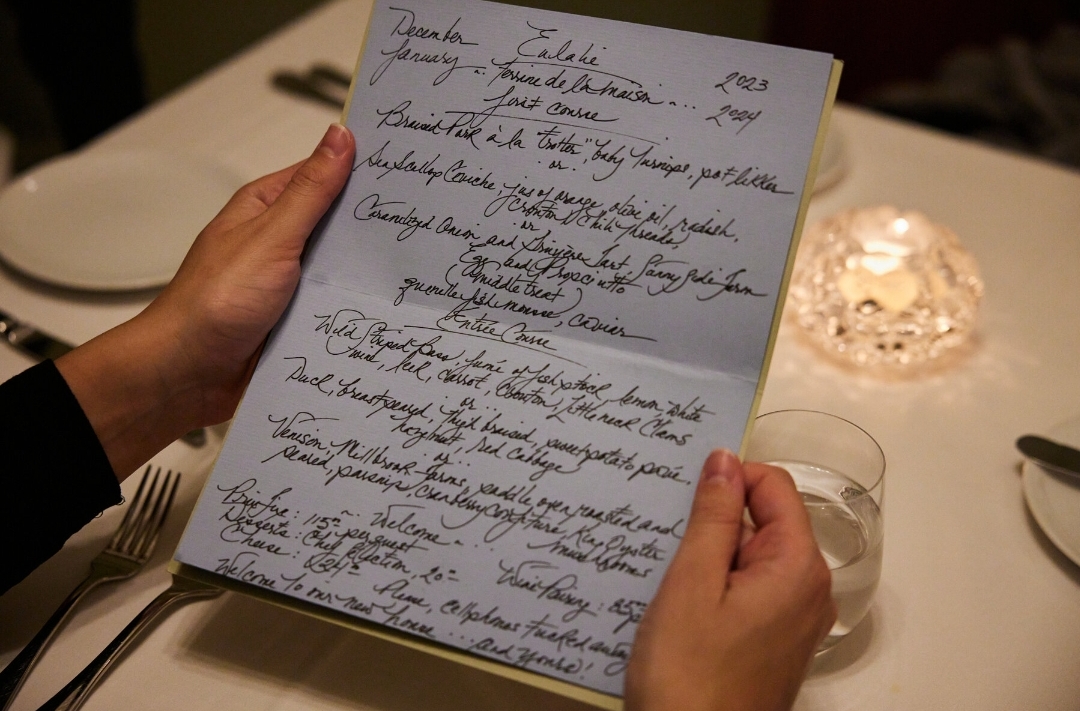 December
January
Eulalie
2023
2024
... Terrine de la maison ...
first course
Braised Pork à la "trotter", baby turnips, pot likker
or
Sea Scallop Ceviche, jus of orange, olive oil, radish,
crouton, chili threads
or
Caramelized Onion and Gruyère Tart, Sunny side farm
Egg and Proscuitto
(middle treat)
quenelle, fish mousse, caviar
Entrée Course
Wild Striped Bass, fumé of fish stock, lemon, white
wine, leek, carrot, crouton, littleneck clams
or
Duck, breast seared, thigh braised, sweet potato purée,
hazelnut, red cabbage
or
Venison, Millbrook farms, saddle oven roasted and
seared, parsnip, cranberry confiture, King Oyster
mushrooms
... Welcome ...
Prix fixe: 115 per guest
Wine Pairing: 85
Desserts: selection, 20
Cheese: 24
Please, cellphones tucked away
Welcome to our new house ... and yours!